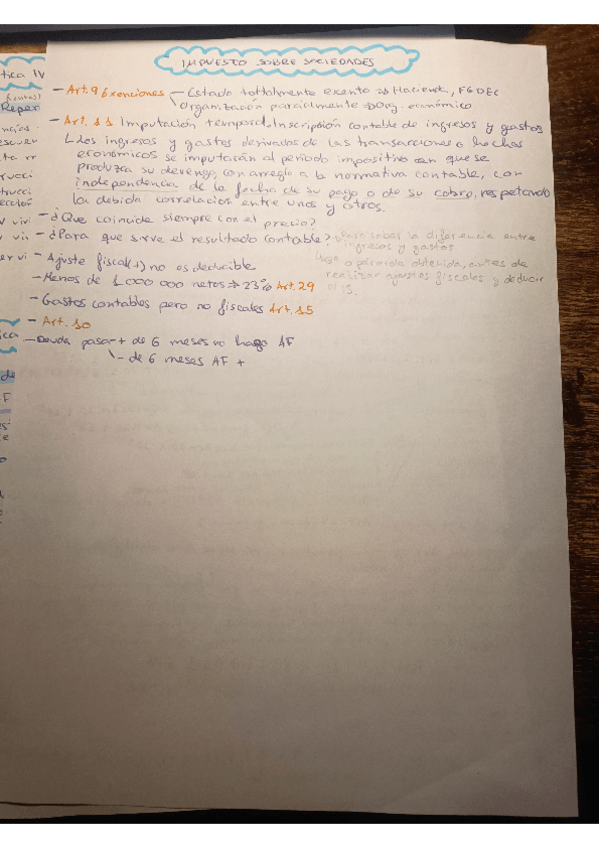 IMPUESTO SOBRE SOCIEDADES
- Art. 9 Exenciones - Estado tottalmente exento → Hacienda, FGDEC
Organización parcialmente → Org. económico
- Art. 11 Imputación temporal. Inscripsión contable de ingresos y gastos
Los ingresos y gastos derivados de las transacciones o hechos
económicos se imputarán al periodo impositivo en que se
produzca su devengo, con arreglo a la normativa contable, con
independencia de la fecha de su pago o de su cobro, respetando
la debida correlacios entre unos y otros.
- ¿Que coincide siempre con el precio?
- ¿Para que sirve el resultado contable? Para saber la diferencia entre
ingresos y gastos
o pérdida obtenida, antes de
realizar ajustes fiscales y deducir
el IS.
- Ajuste fiscal(+) no es deducible
- Menos de 1 000 000 netos → 23% Art. 29
- Gastos contables pero no fiscales Art. 15
- Art. 10
- Deuda pasar + de 6 meses no hago AF
- de 6 meses AF +
tica IV
Reper